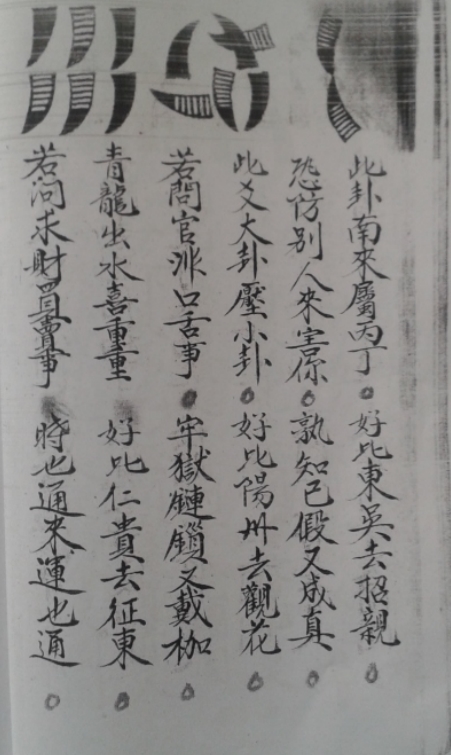 此卦南來屬丙丁 好比東吳去招親
恐防別人來害你 孰知已假又成真
此爻大卦壓小卦 好比陽州去觀花
若問官非口舌事 牢獄鏈鎖又戴枷
青龍出水喜重重 好比仁貴去征東
若问求財買賣事 時也通來運也通